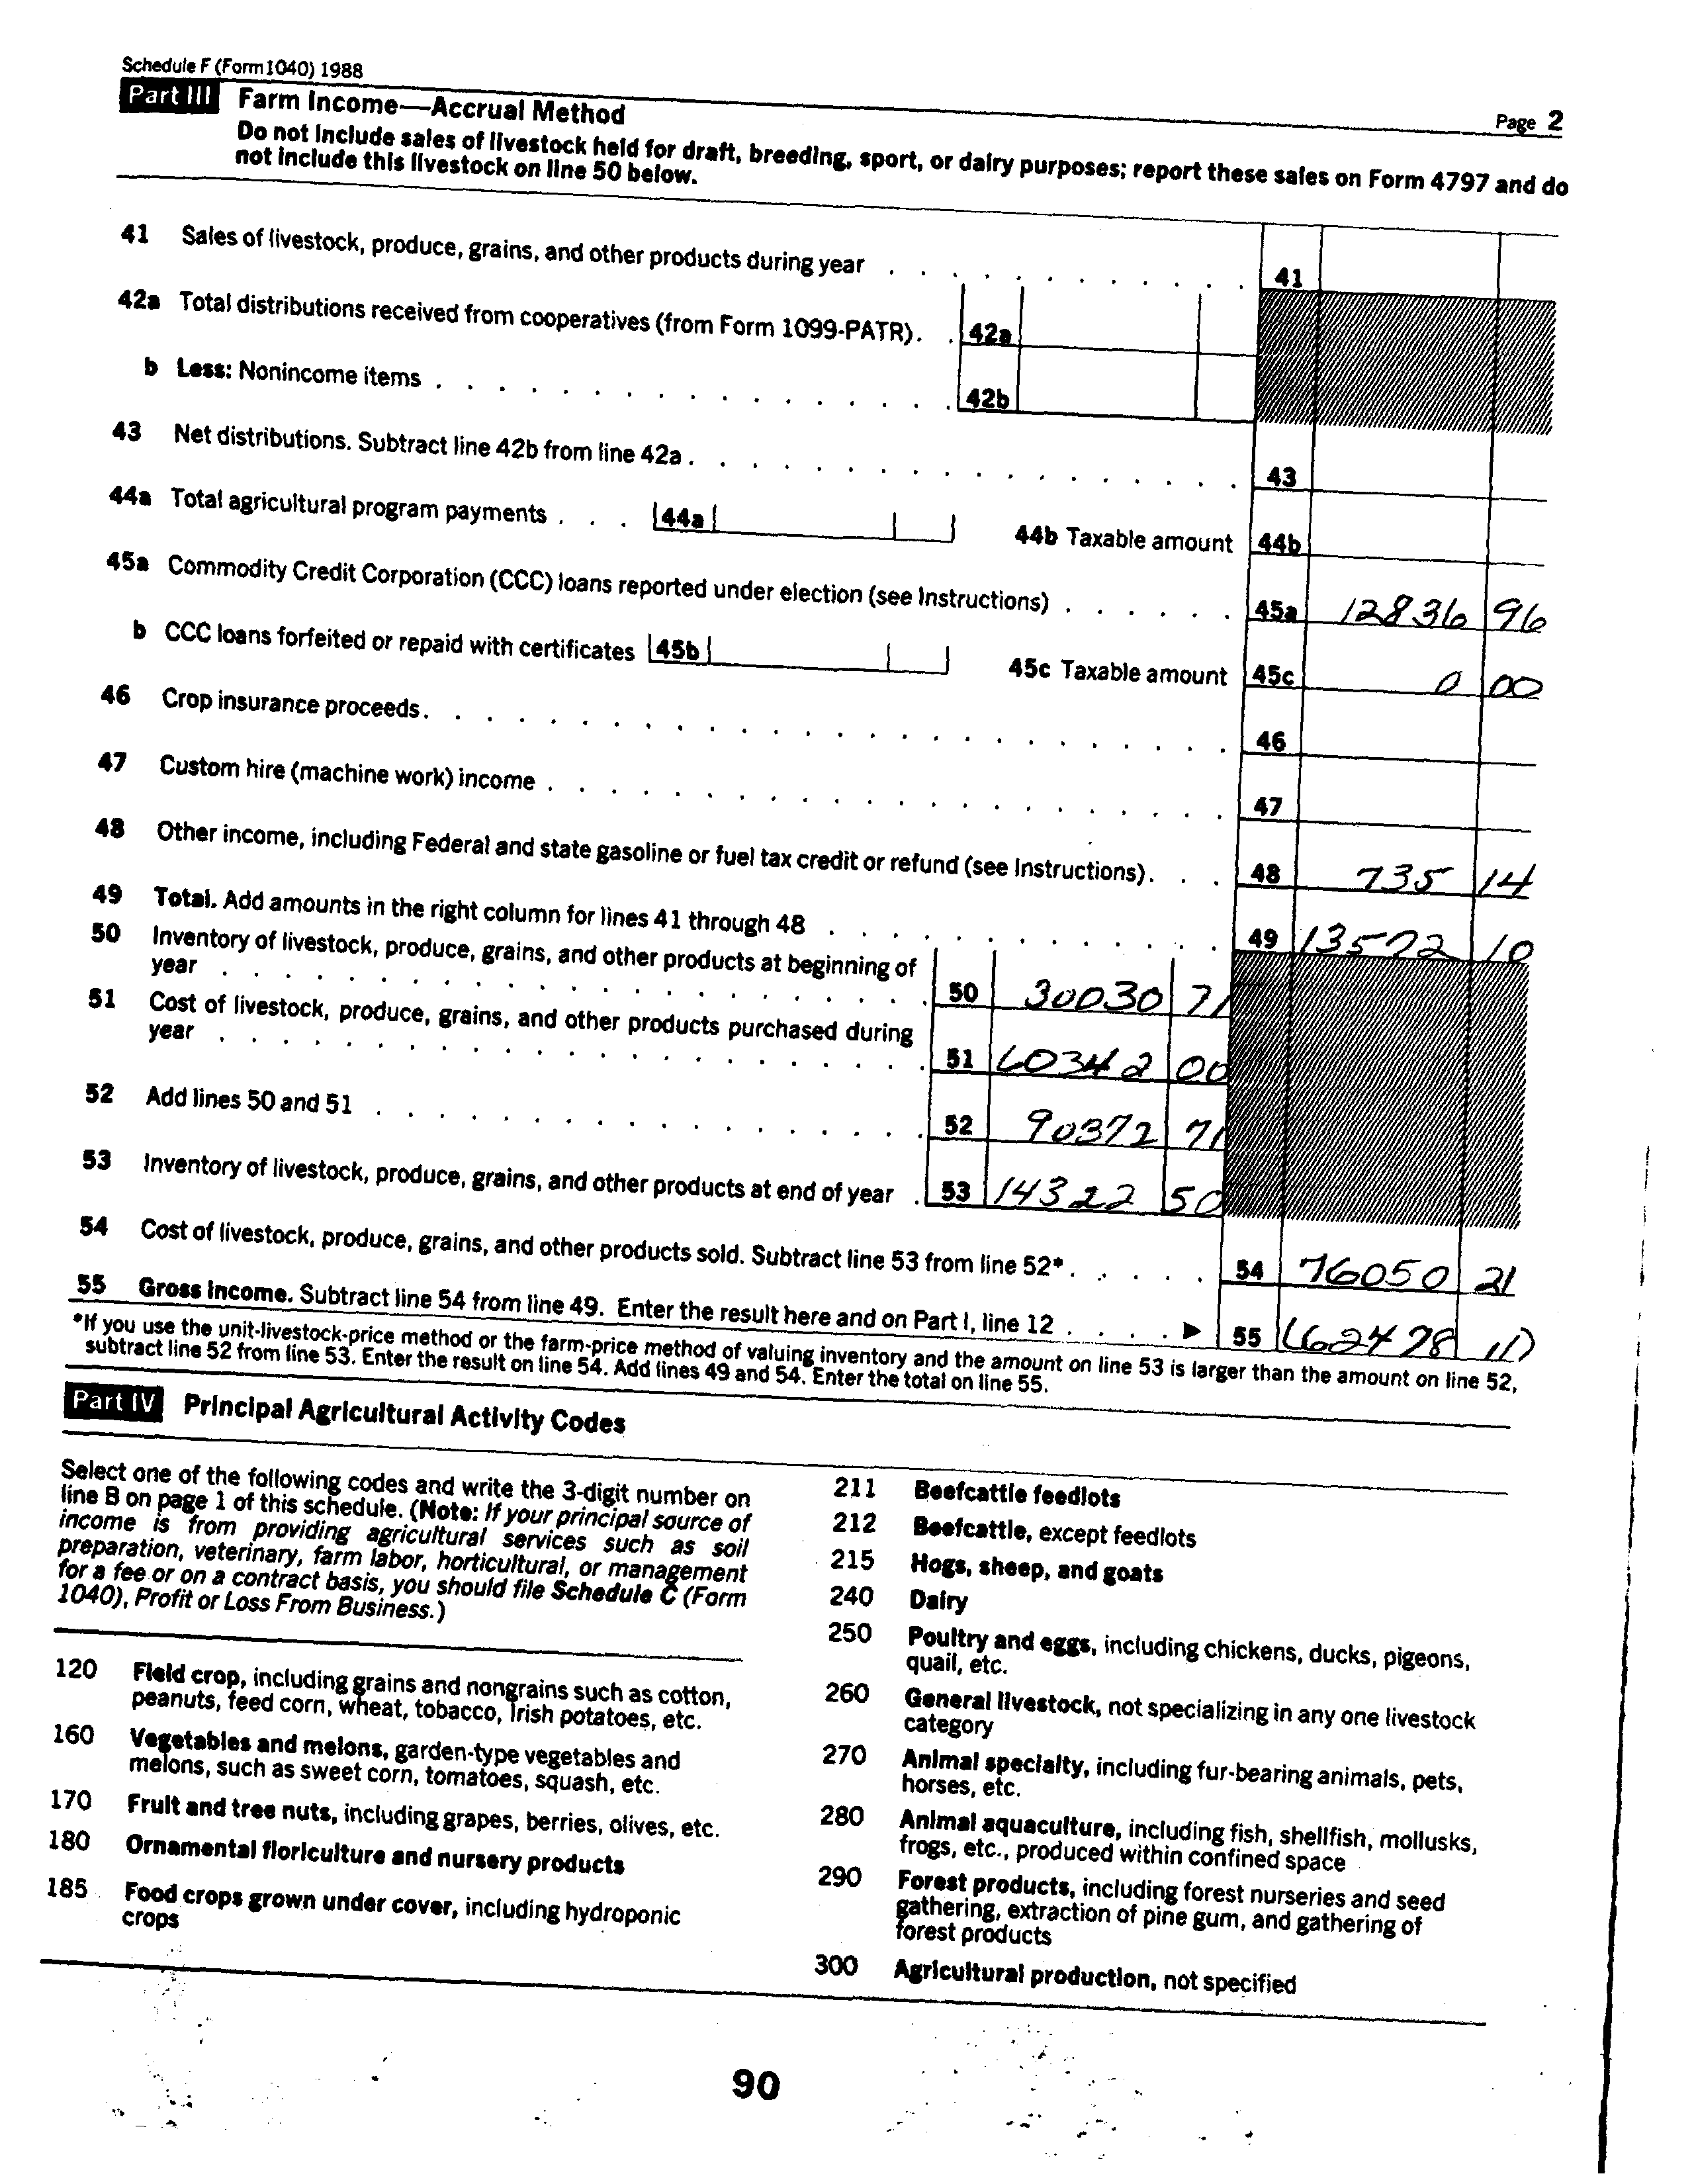 Schedule F (Form 1040) 1988
Page 2
Part III Farm Income—Accrual Method
Do not include sales of livestock held for draft, breeding, sport, or dairy purposes; report these sales on Form 4797 and do
not include this livestock on line 50 below.
41 Sales of livestock, produce, grains, and other products during year . . . . . . . . . . 41
42a Total distributions received from cooperatives (from Form 1099-PATR) . . 42a
b Less: Nonincome items . . . . . . . . . . . . . . . . . 42b
43 Net distributions. Subtract line 42b from line 42a . . . . . . . . . . . . . . . . . . 43
44a Total agricultural program payments . . . 44a 44b Taxable amount 44b
45a Commodity Credit Corporation (CCC) loans reported under election (see Instructions) . . . . . . 45a 12836 96
b CCC loans forfeited or repaid with certificates 45b 45c Taxable amount 45c 0 00
46 Crop insurance proceeds . . . . . . . . . . . . . . . . . . . . . . . . . . 46
47 Custom hire (machine work) income . . . . . . . . . . . . . . . . . . . . . . 47
48 Other income, including Federal and state gasoline or fuel tax credit or refund (see Instructions) . . . 48 735 14
49 Total. Add amounts in the right column for lines 41 through 48 . . . . . . . . . . . . . 49 13572 10
50 Inventory of livestock, produce, grains, and other products at beginning of
year . . . . . . . . . . . . . . . . . . . . . . . 50 30030 71
51 Cost of livestock, produce, grains, and other products purchased during
year . . . . . . . . . . . . . . . . . . . . . . . 51 60342 00
52 Add lines 50 and 51 . . . . . . . . . . . . . . . . . . 52 90372 71
53 Inventory of livestock, produce, grains, and other products at end of year . 53 14322 50
54 Cost of livestock, produce, grains, and other products sold. Subtract line 53 from line 52* . . . . . 54 76050 21
55 Gross income. Subtract line 54 from line 49. Enter the result here and on Part I, line 12 . . . . ▶ 55 (62478 11)
*If you use the unit-livestock-price method or the farm-price method of valuing inventory and the amount on line 53 is larger than the amount on line 52,
subtract line 52 from line 53. Enter the result on line 54. Add lines 49 and 54. Enter the total on line 55.
Part IV Principal Agricultural Activity Codes
Select one of the following codes and write the 3-digit number on
line B on page 1 of this schedule. (Note: If your principal source of
income is from providing agricultural services such as soil
preparation, veterinary, farm labor, horticultural, or management
for a fee or on a contract basis, you should file Schedule C (Form
1040), Profit or Loss From Business.)
120 Field crop, including grains and nongrains such as cotton,
peanuts, feed corn, wheat, tobacco, Irish potatoes, etc.
160 Vegetables and melons, garden-type vegetables and
melons, such as sweet corn, tomatoes, squash, etc.
170 Fruit and tree nuts, including grapes, berries, olives, etc.
180 Ornamental floriculture and nursery products
185 Food crops grown under cover, including hydroponic
crops
211 Beefcattle feedlots
212 Beefcattle, except feedlots
215 Hogs, sheep, and goats
240 Dairy
250 Poultry and eggs, including chickens, ducks, pigeons,
quail, etc.
260 General livestock, not specializing in any one livestock
category
270 Animal specialty, including fur-bearing animals, pets,
horses, etc.
280 Animal aquaculture, including fish, shellfish, mollusks,
frogs, etc., produced within confined space
290 Forest products, including forest nurseries and seed
gathering, extraction of pine gum, and gathering of
forest products
300 Agricultural production, not specified
90